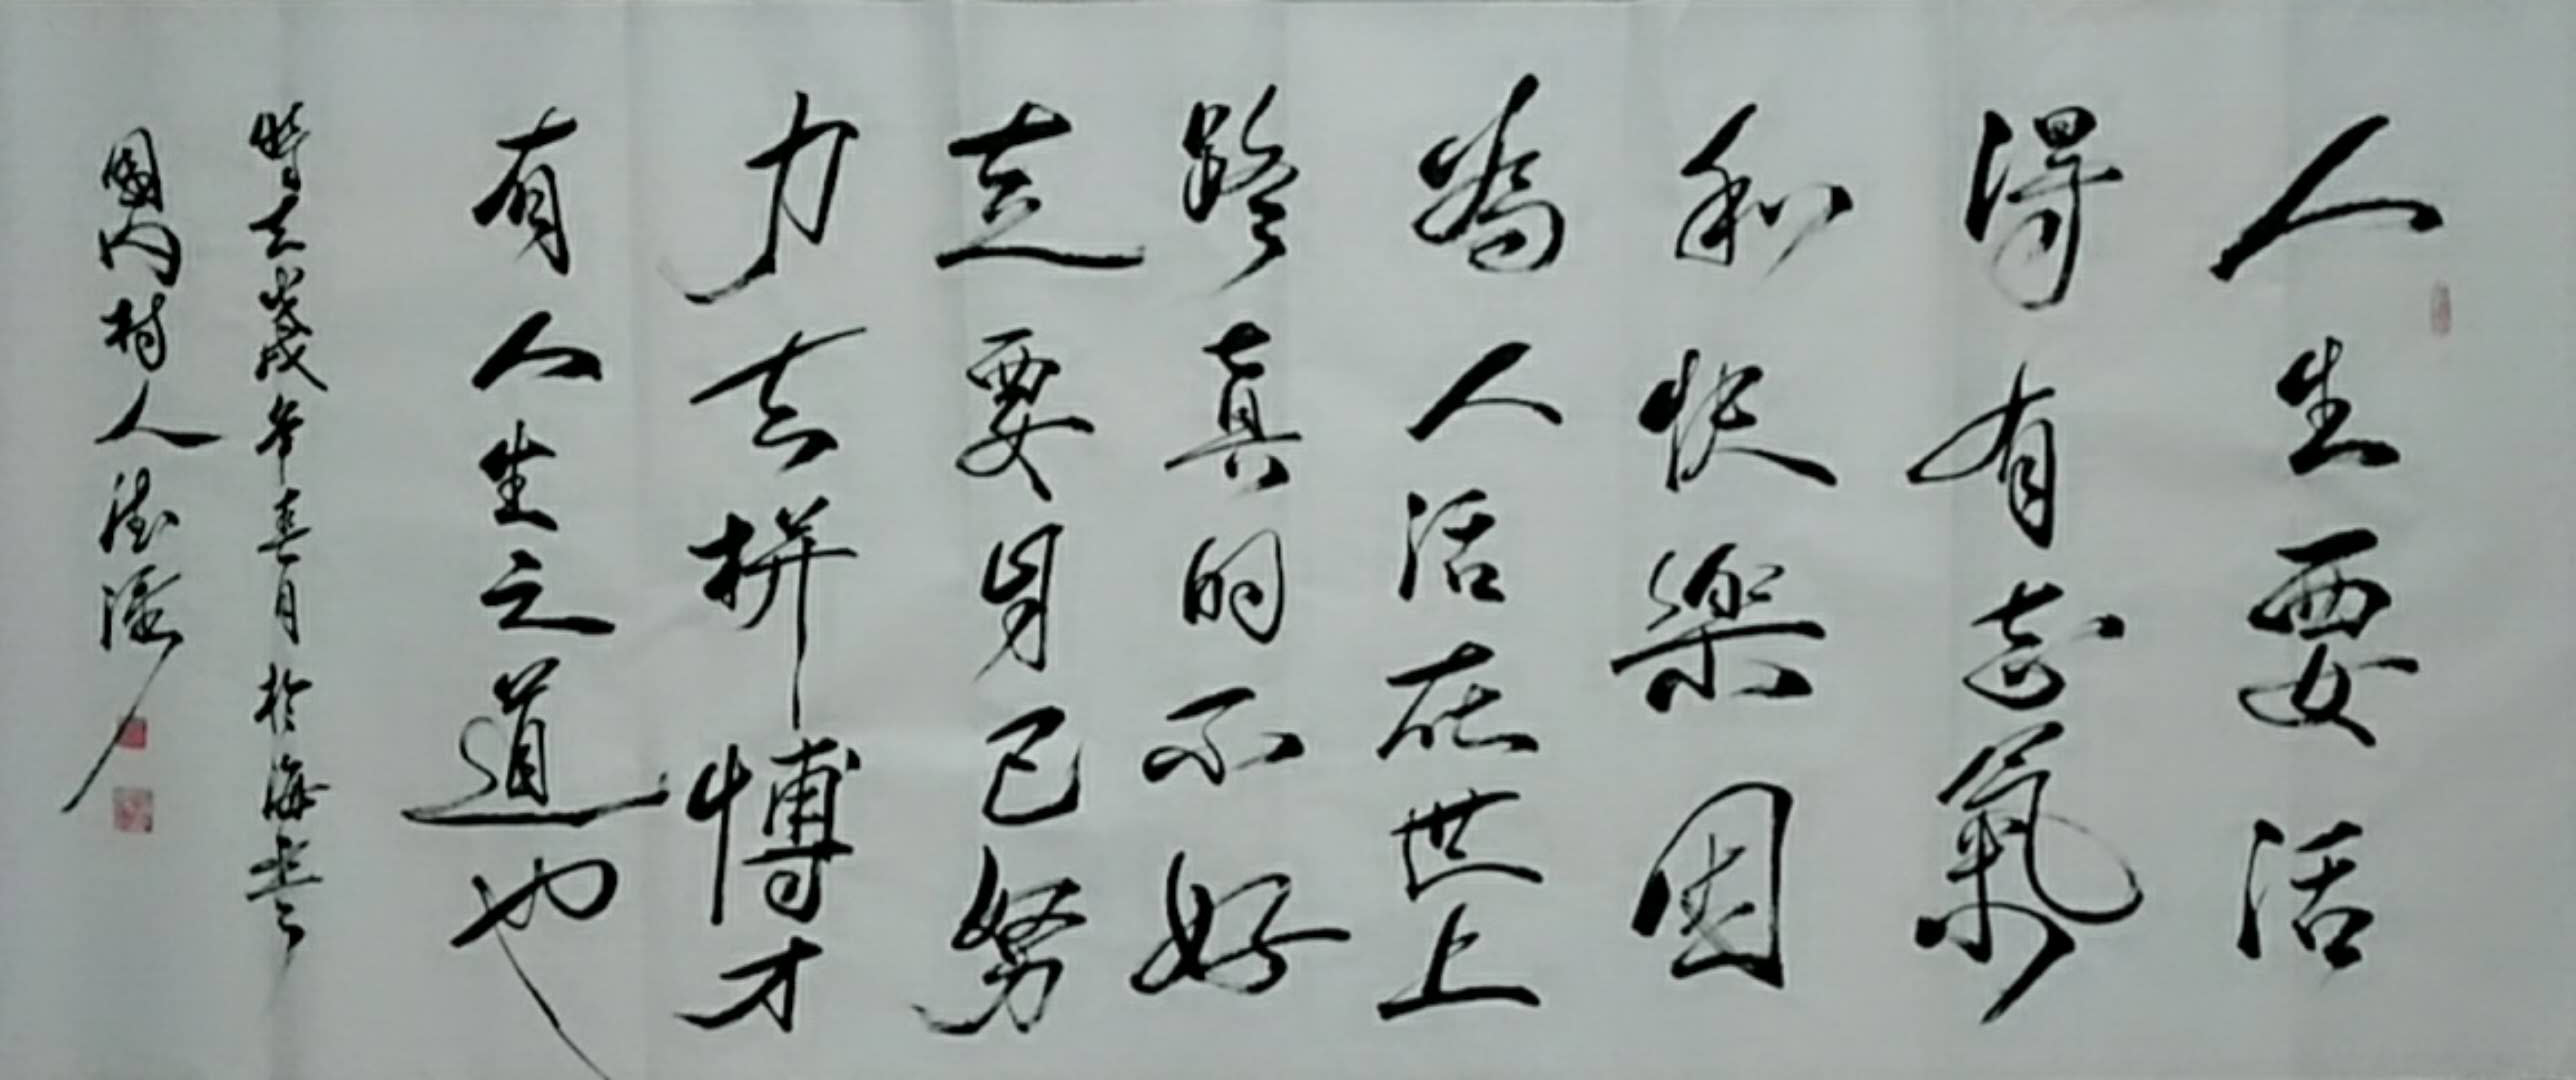 人生要活
得有志氣
和快樂因
為人活在世上
路真的不好
走要自己努
力去拼博才
有人生之道也
時去歲年春月於海
園內村人德